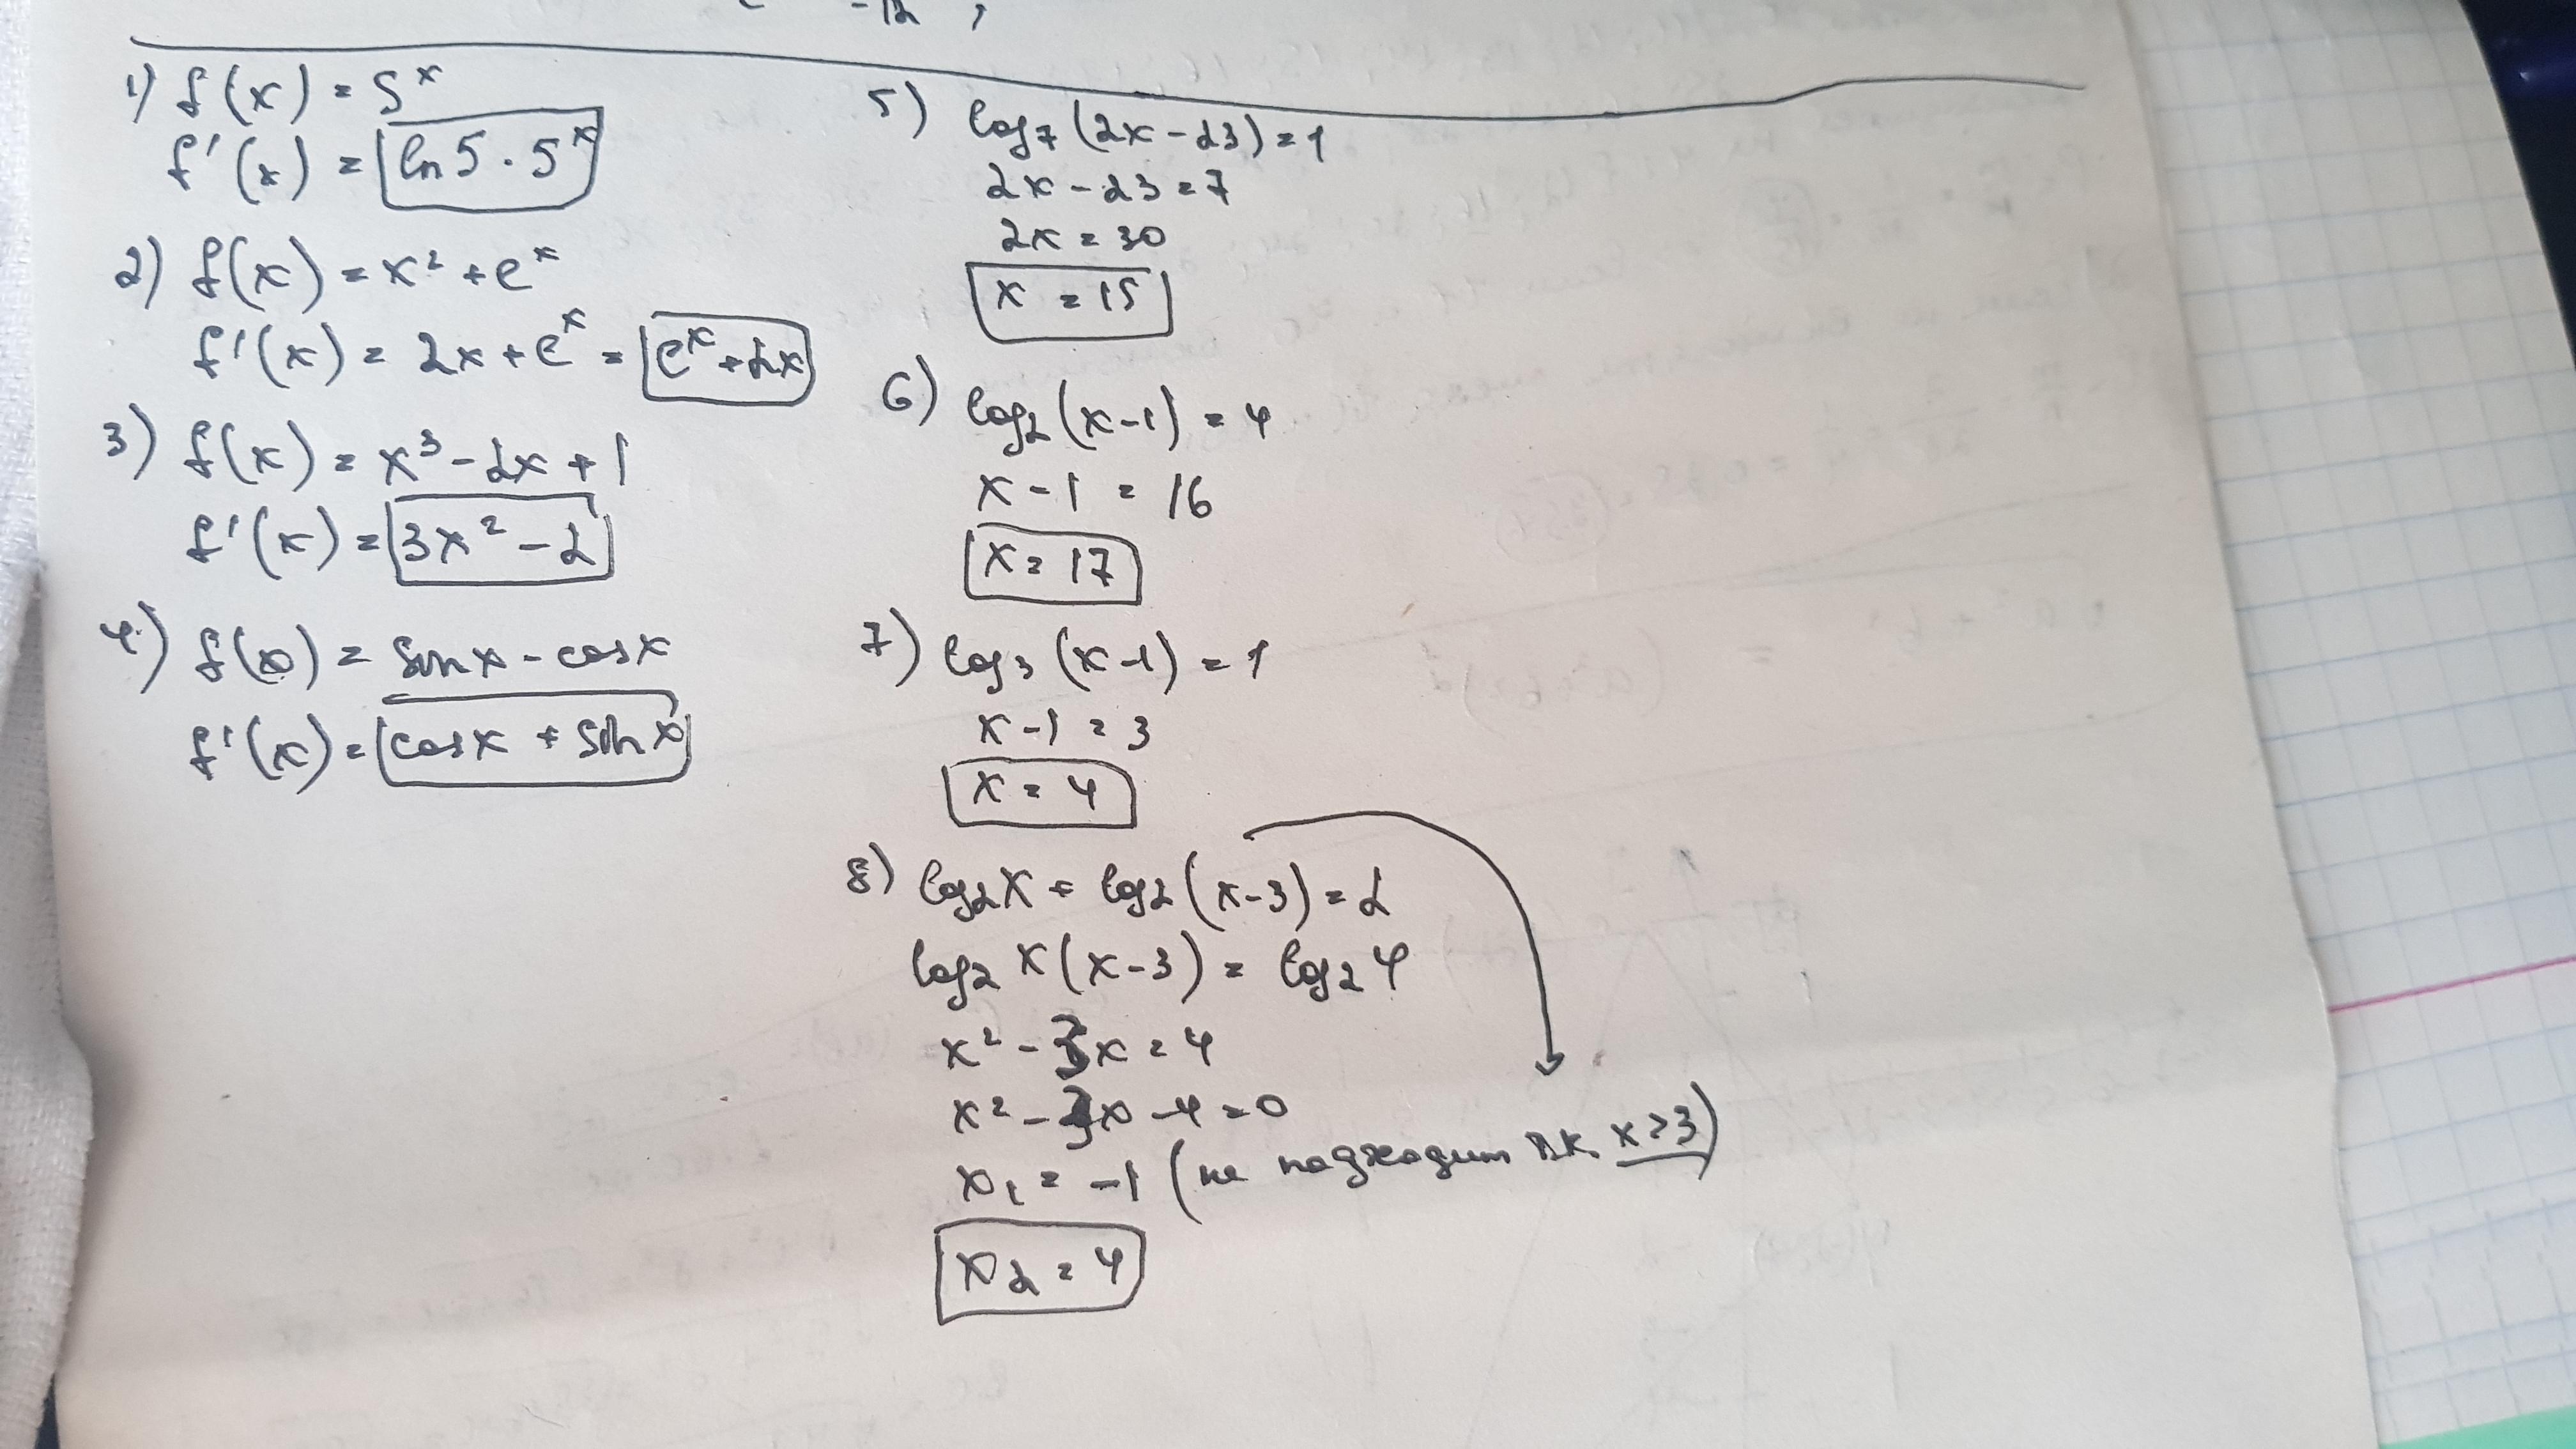 1) f(x) = 5^x
f'(x) = ln5 · 5^x
2) f(x) = x² + e^x
f'(x) = 2x + e^x = e^x + 2x
3) f(x) = x³ - 2x + 1
f'(x) = 3x² - 2
4) f(x) = sinx - cosx
f'(x) = cosx + sinx
5) log₇(2x - 23) = 1
2x - 23 = 7
2x = 30
x = 15
6) log₂(x-1) = 4
x - 1 = 16
x = 17
7) log₃(x-1) = 1
x - 1 = 3
x = 4
8) log₂x + log₂(x-3) = 2
log₂ x(x-3) = log₂4
x² - 3x = 4
x² - 3x - 4 = 0
x₁ = -1 (не подходит т.к. x > 3)
x₂ = 4